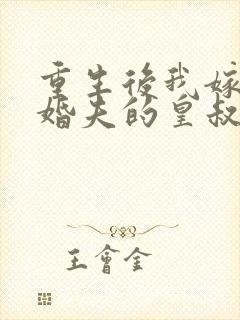 重生後我嫁
婚夫的皇叔
王會全